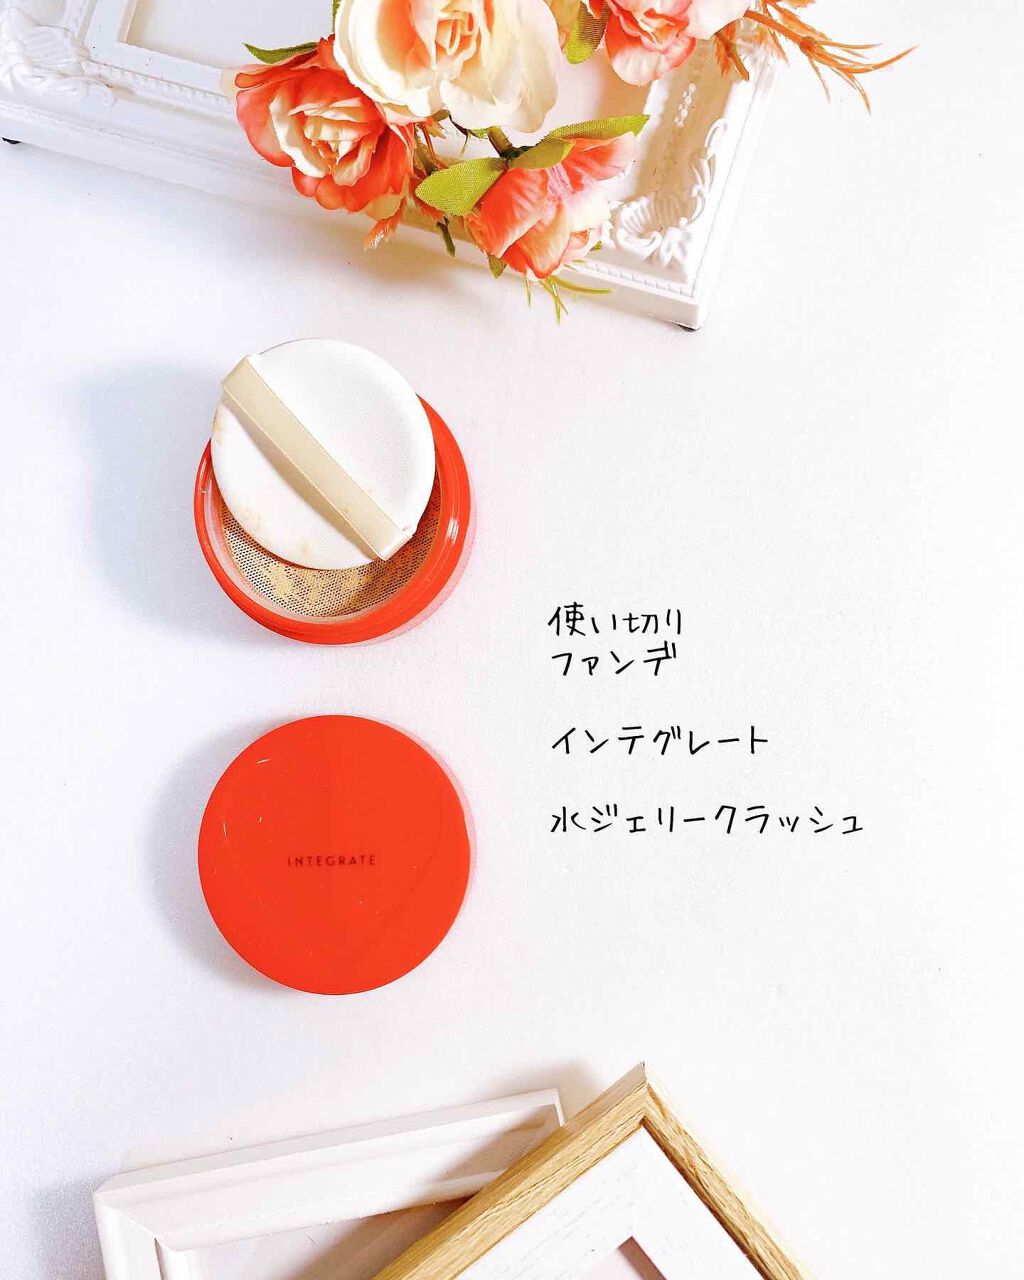 使い切り
ファンデ
インテグレート
水ジェリークラッシュ
INTEGRATE